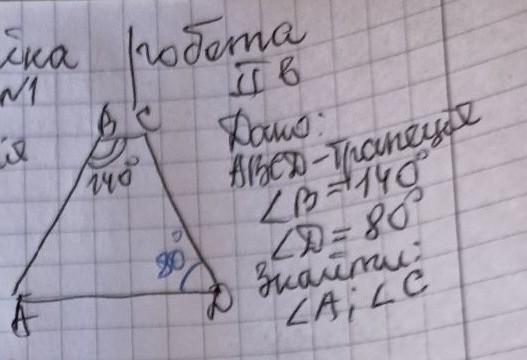 йка | робота
№1 II в
B C
140°
80°
A D
Дано:
ABCD - трапеція
∠B = 140°
∠D = 80°
Знайти:
∠A; ∠C